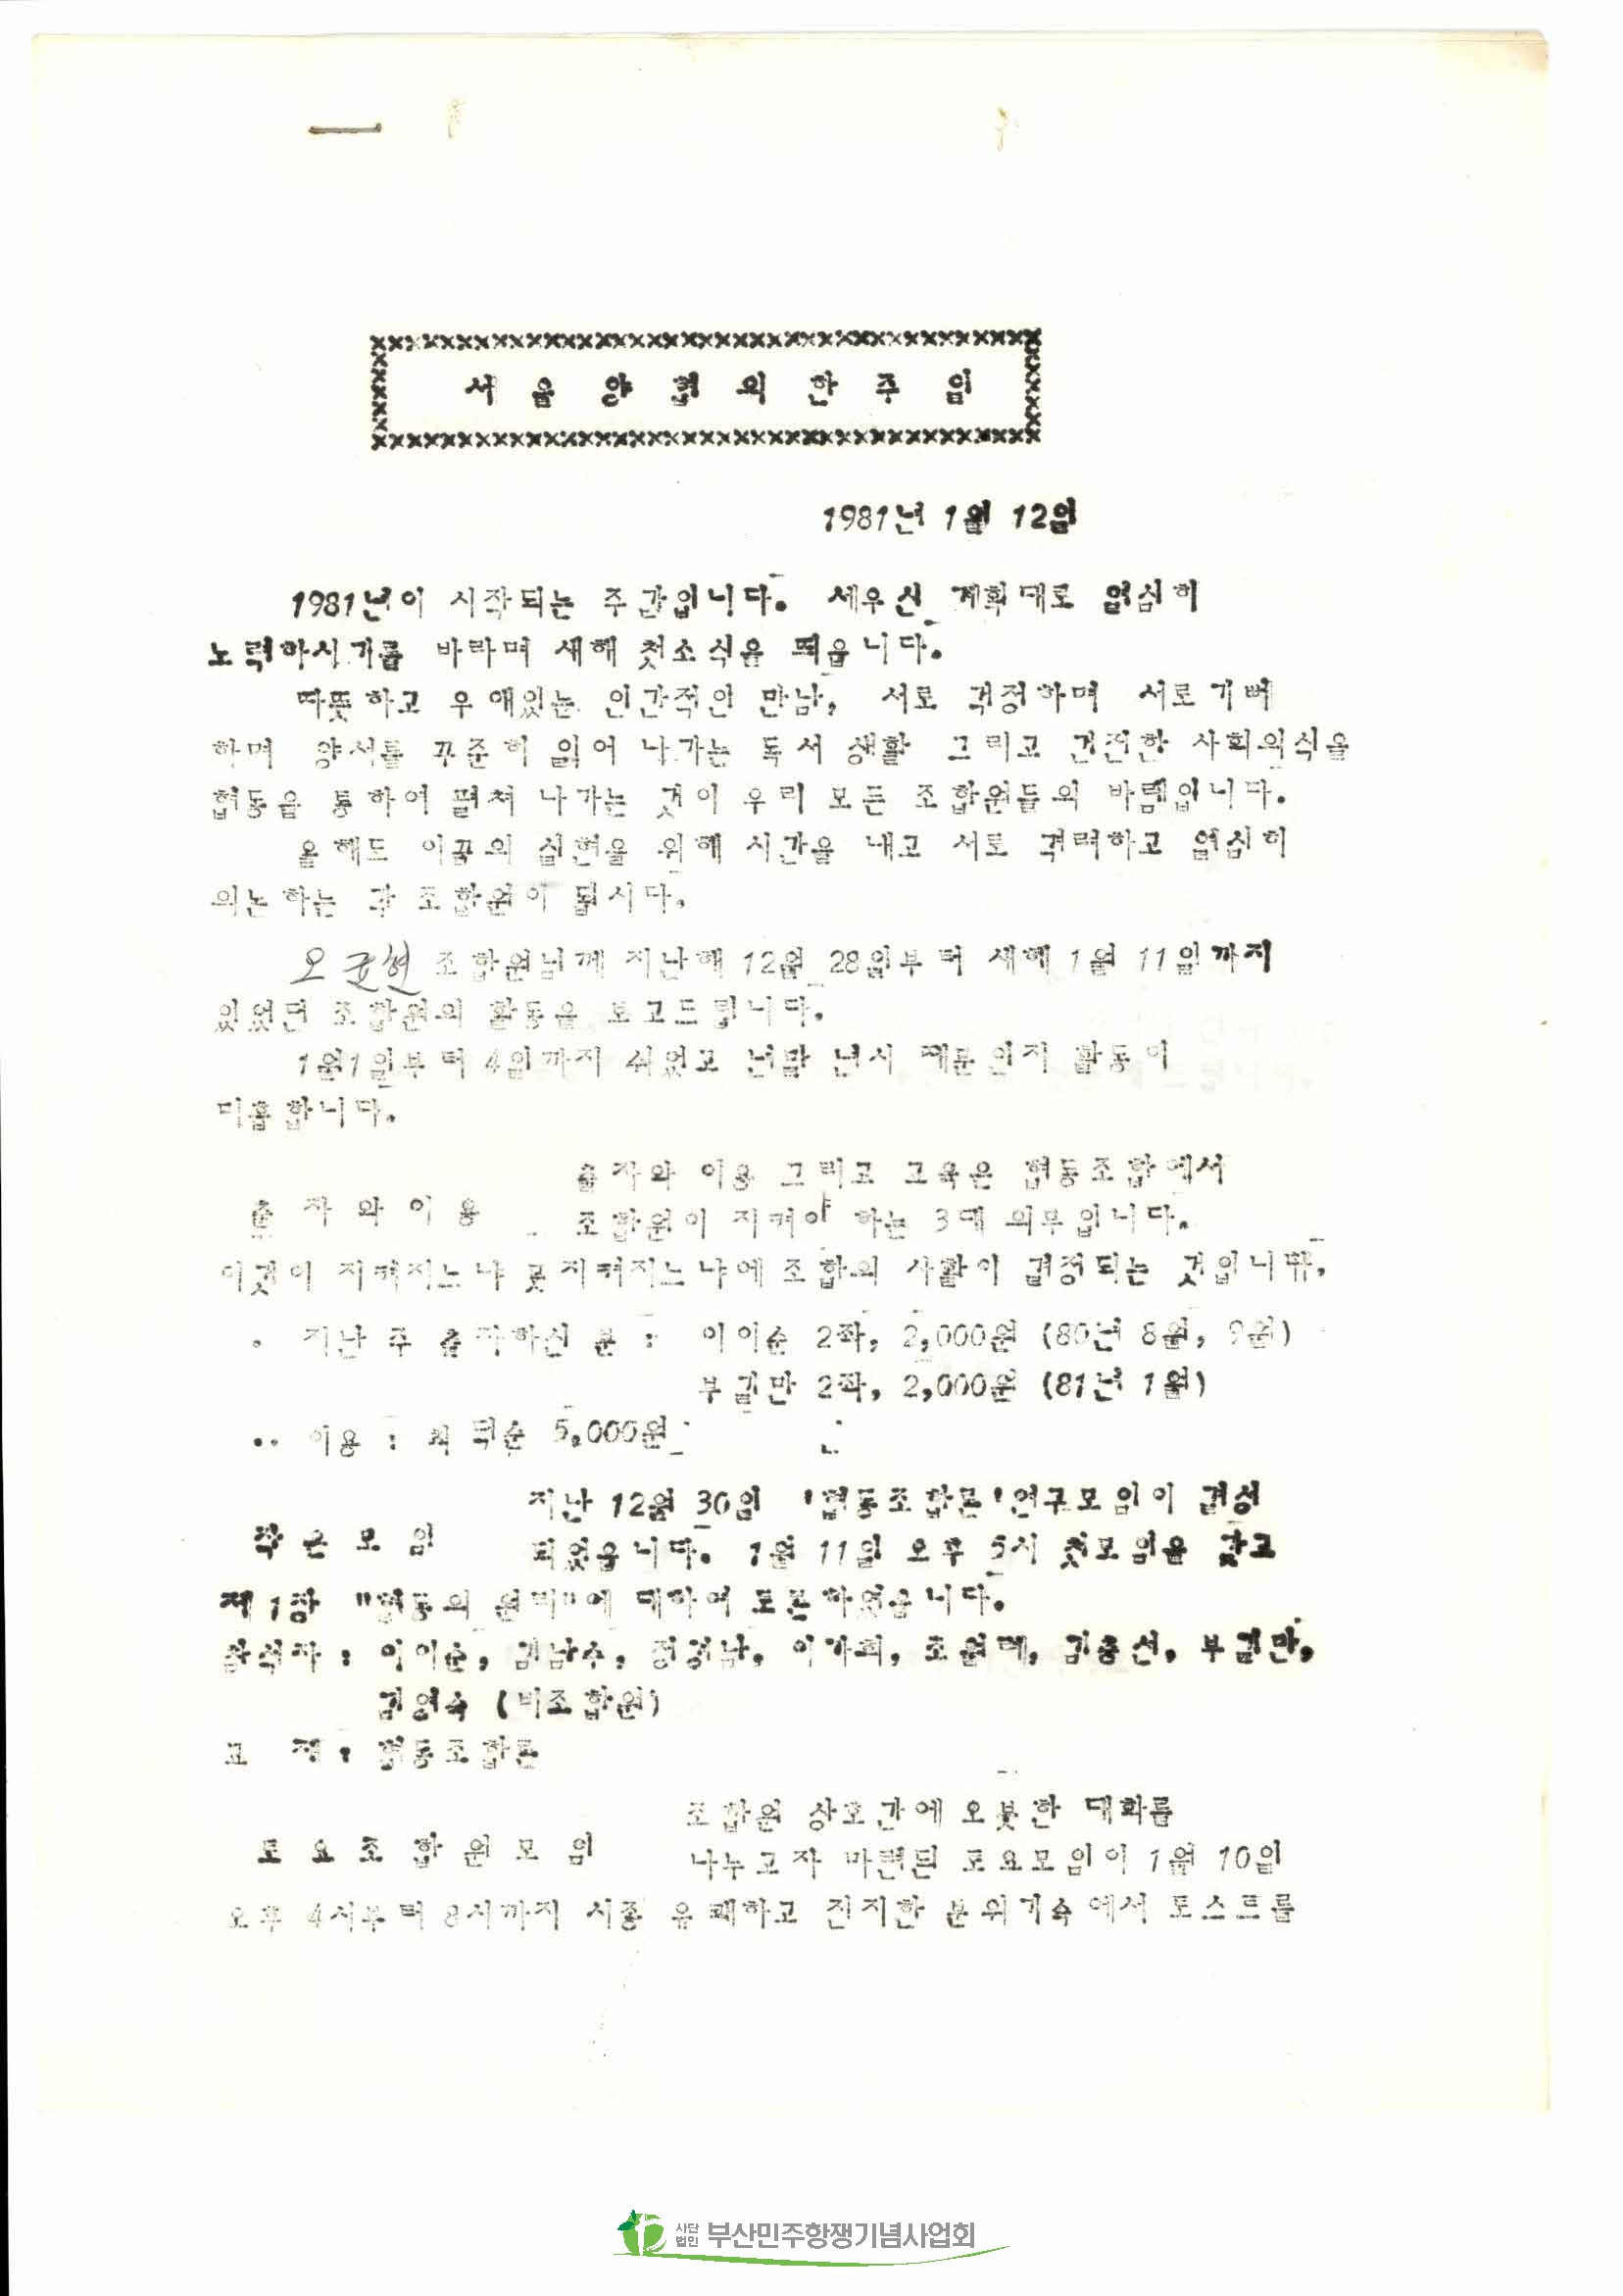 서울양협의 한주일
1981년 1월 12일
1981년이 시작되는 주간입니다. 세우신 계획대로 열심히
노력하시기를 바라며 새해 첫소식을 띄웁니다.
따뜻하고 우애있는 인간적인 만남, 서로 걱정하며 서로 기뻐
하며 양서를 꾸준히 읽어 나가는 독서 생활 그리고 건전한 사회의식을
협동을 통하여 펼쳐 나가는 것이 우리 모든 조합원들의 바램입니다.
올해도 이꿈의 실현을 위해 시간을 내고 서로 격려하고 열심히
의논하는 각 조합원이 됩시다.
오균현 조합원님께 지난해 12월 28일부터 새해 1월 11일까지
있었던 조합원의 활동을 보고드립니다.
1월1일부터 4일까지 쉬었고 년말 년시 때문인지 활동이
미흡합니다.
출자와 이용 그리고 교육은 협동조합에서
출자와이용
조합원이 지켜야 하는 3대 의무입니다.
이것이 지켜지느냐 못지켜지느냐에 조합의 사활이 결정되는 것입니다.
. 지난 주 출자하신 분 : 이이순 2좌, 2,000원 (80년 8월, 9월)
부길만 2좌, 2,000원 (81년 1월)
.. 이용 : 최덕순 5,000원
지난 12월 30일 '협동조합론'연구모임이 결성
작은모임
되었읍니다. 1월 11일 오후 5시 첫모임을 갖고
제1장 "협동의 원리"에 대하여 토론하였읍니다.
참석자 : 이이순, 김남수, 정경남, 이가희, 김종선, 부길만,
김영숙 (비조합원)
교 재 : 협동조합론
조합원 상호간에 오붓한 대화를
토요조합원모임
나누고자 마련된 토요모임이 1월 10일
오후 4시부터 8시까지 시종 유쾌하고 진지한 분위기속에서 토스트를
사단법인 부산민주항쟁기념사업회